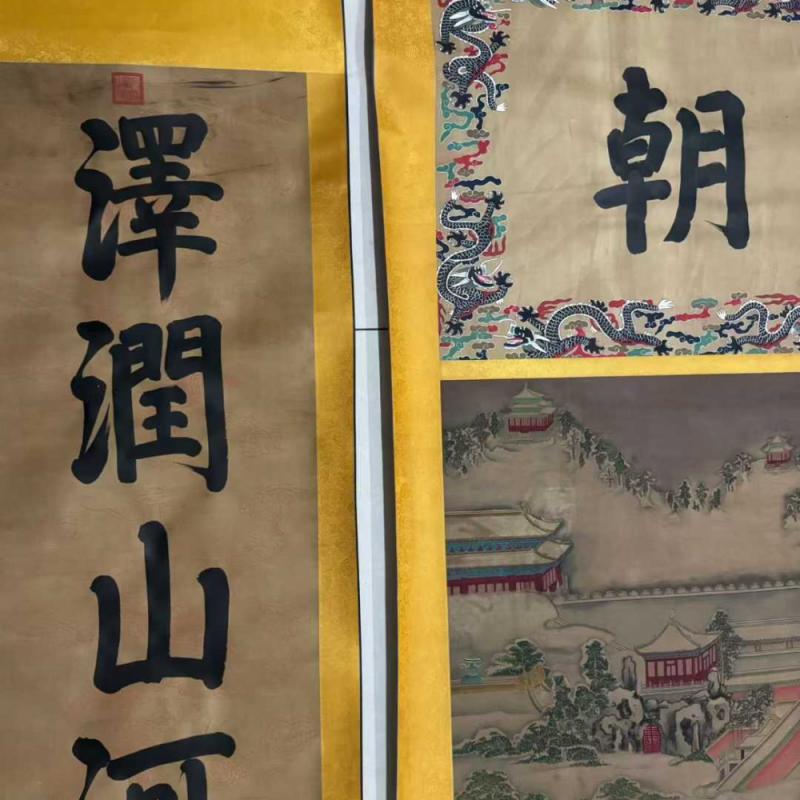 澤潤山河
朝